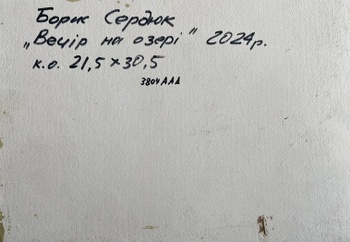 Борис Сердюк
„Вечір на озері" 2024р.
к.о. 21,5×30,5
3804ААА